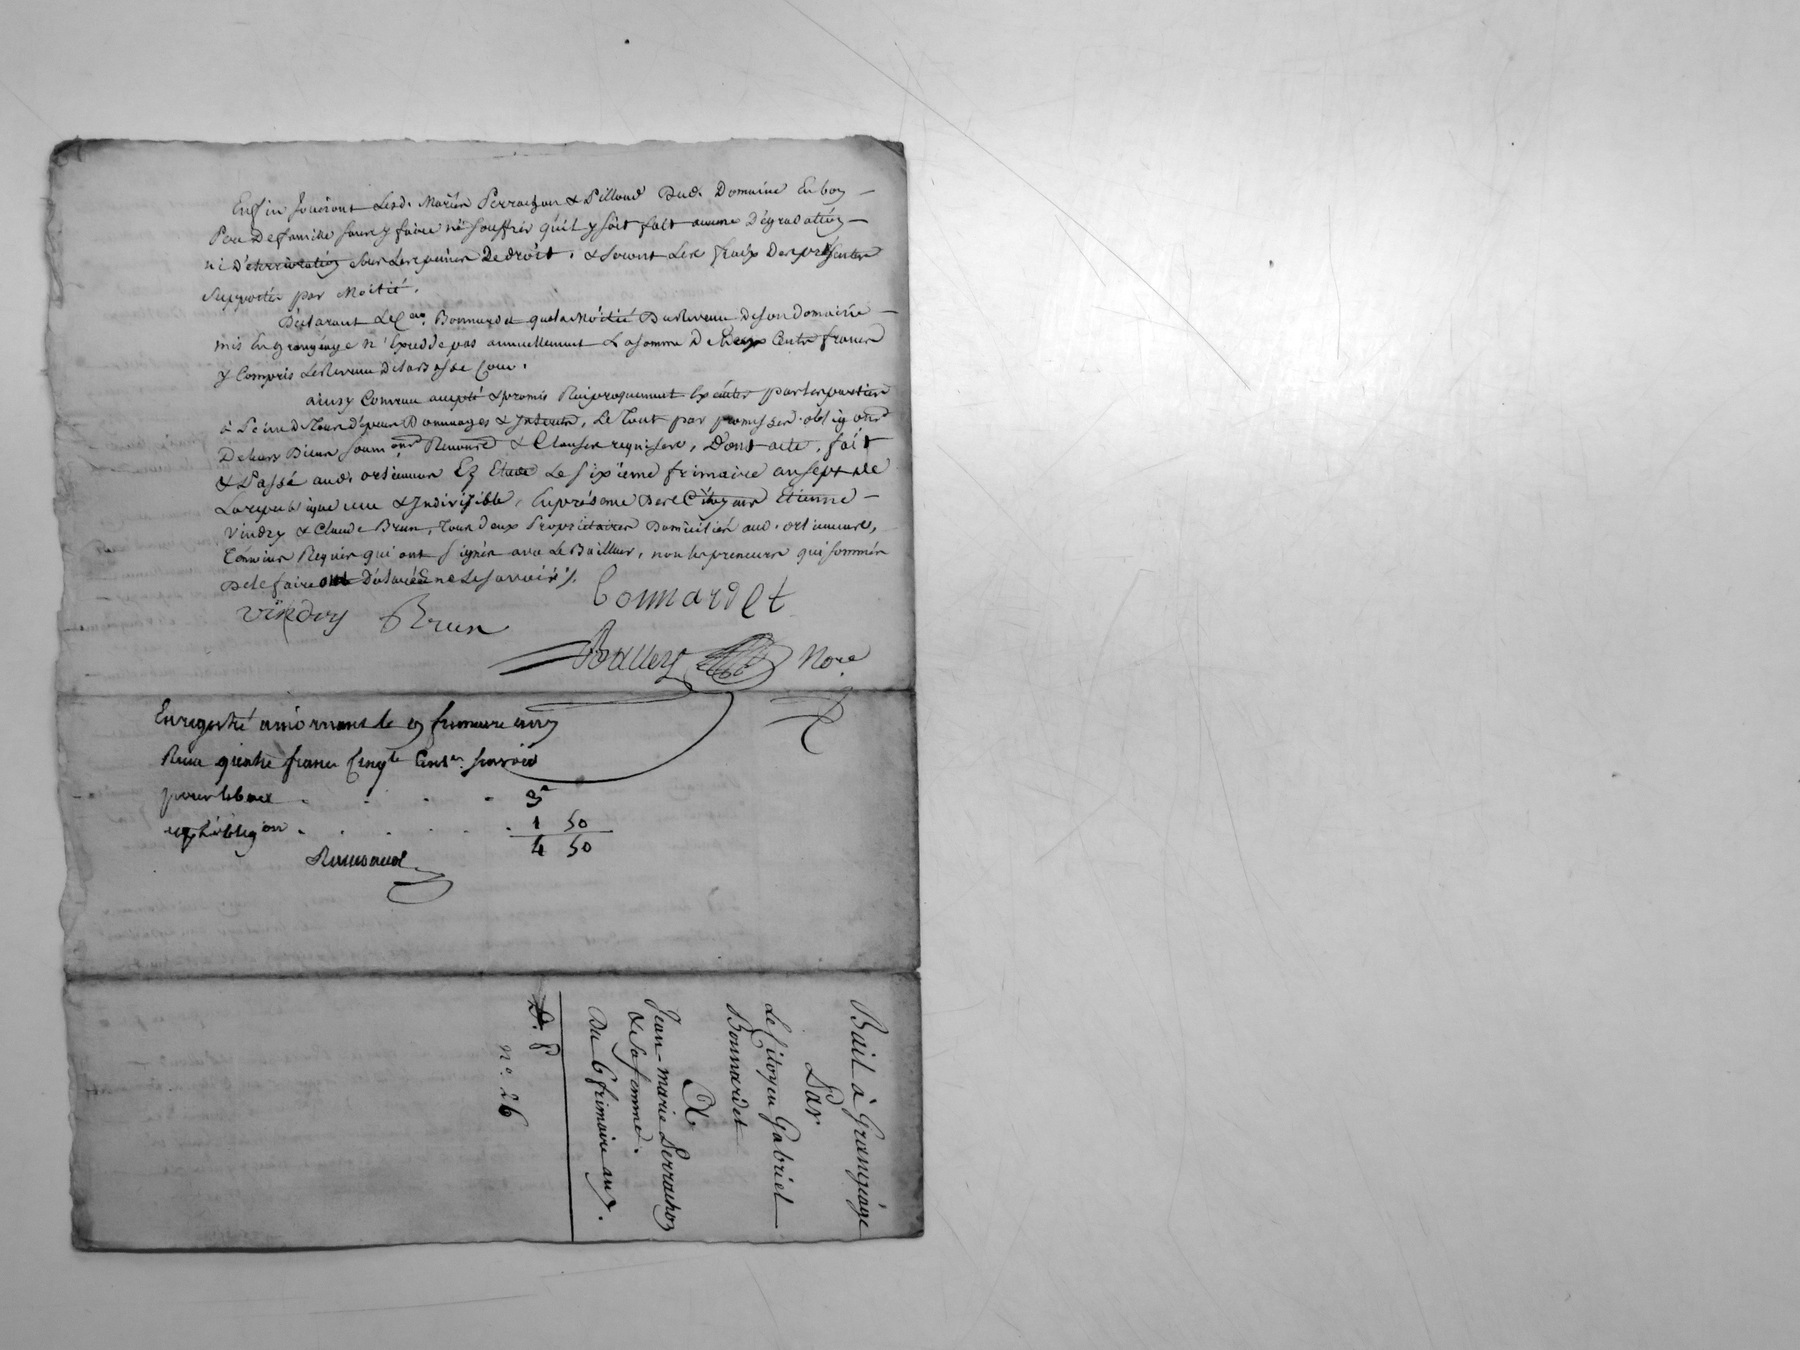 Enfin Jouiront Lesd. Mariés Perrachon & Pilloud Dud. Domaine En bon
Pere De famille sans y faire ni souffrir qu'il y soit fait aucune Dégradation
ni Déterrioration sous Les peines De droit. & seront Les fraix Des présentes
supportés par Moitié.
Déclarant Le Cen. Bonnardet que la Moitié Du Revenu De son Domaine
mis En grangéage N'Excedde pas annuellement La somme De Deux Cents francs
y Compris Le Revenu De la Basse Cour.
ainsy Convenu accepté & promis Reciproquement Exécuter par les parties
à Peine De Tous dépens Dommages & Interets, Le Tout par promesses obligons
De leurs Biens soumons Renonces & Clauses requises, Dont acte, fait
& Passé aud. ortiemeur En Etude Le sixième frimaire an sept de
La republique une & Indivisible, En présence Des Citoyens Etienne
Vindry & Claude Brun, Tous deux Propriétaires Domiciliés aud. ortiemeur,
Témoins Requis qui ont signés avec Le Bailleur, non les preneurs qui sommés
De le faire ont Déclarés Ne Le savoir.
Bonnardet
vindry Brun
Nore
Enregistré a mornant le 9 frimaire an 7
Recu quatre francs Cinqte Centes. savoir
pour le bail 3
1 50
4 50
Bail à Grangéage
Par
Le Citoyen Gabriel
Bonnardet
A
Jean-marie Perrachon
& sa femme.
Du 6 frimaire an 7.
n°. 26